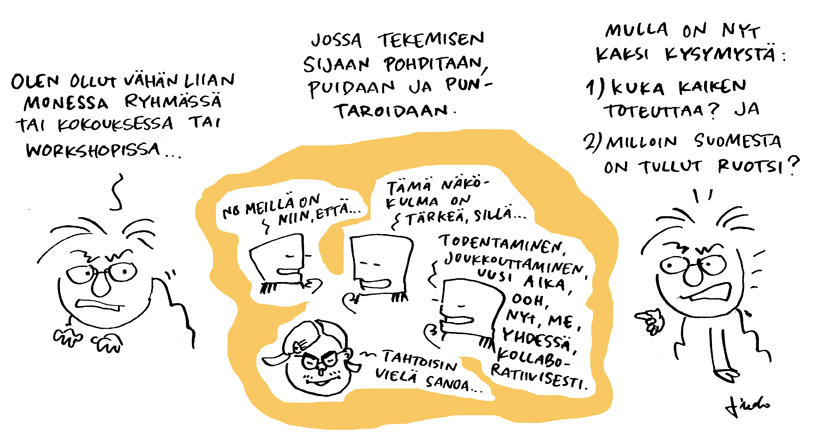 OLEN OLLUT VÄHÄN LIIAN
MONESSA RYHMÄSSÄ
TAI KOKOUKSESSA TAI
WORKSHOPISSA...
JOSSA TEKEMISEN
SIJAAN POHDITAAN,
PUIDAAN JA PUN-
TAROIDAAN.
NO MEILLÄ ON
NIIN, ETTÄ...
TÄMÄ NÄKÖ-
KULMA ON
TÄRKEÄ, SILLÄ...
TODENTAMINEN,
JOUKKOUTTAMINEN,
UUSI AIKA,
OOH,
NYT, ME,
YHDESSÄ,
KOLLABO-
RATIIVISESTI.
TAHTOISIN
VIELÄ SANOA...
MULLA ON NYT
KAKSI KYSYMYSTÄ:
1) KUKA KAIKEN
TOTEUTTAA? JA
2) MILLOIN SUOMESTA
ON TULLUT RUOTSI?